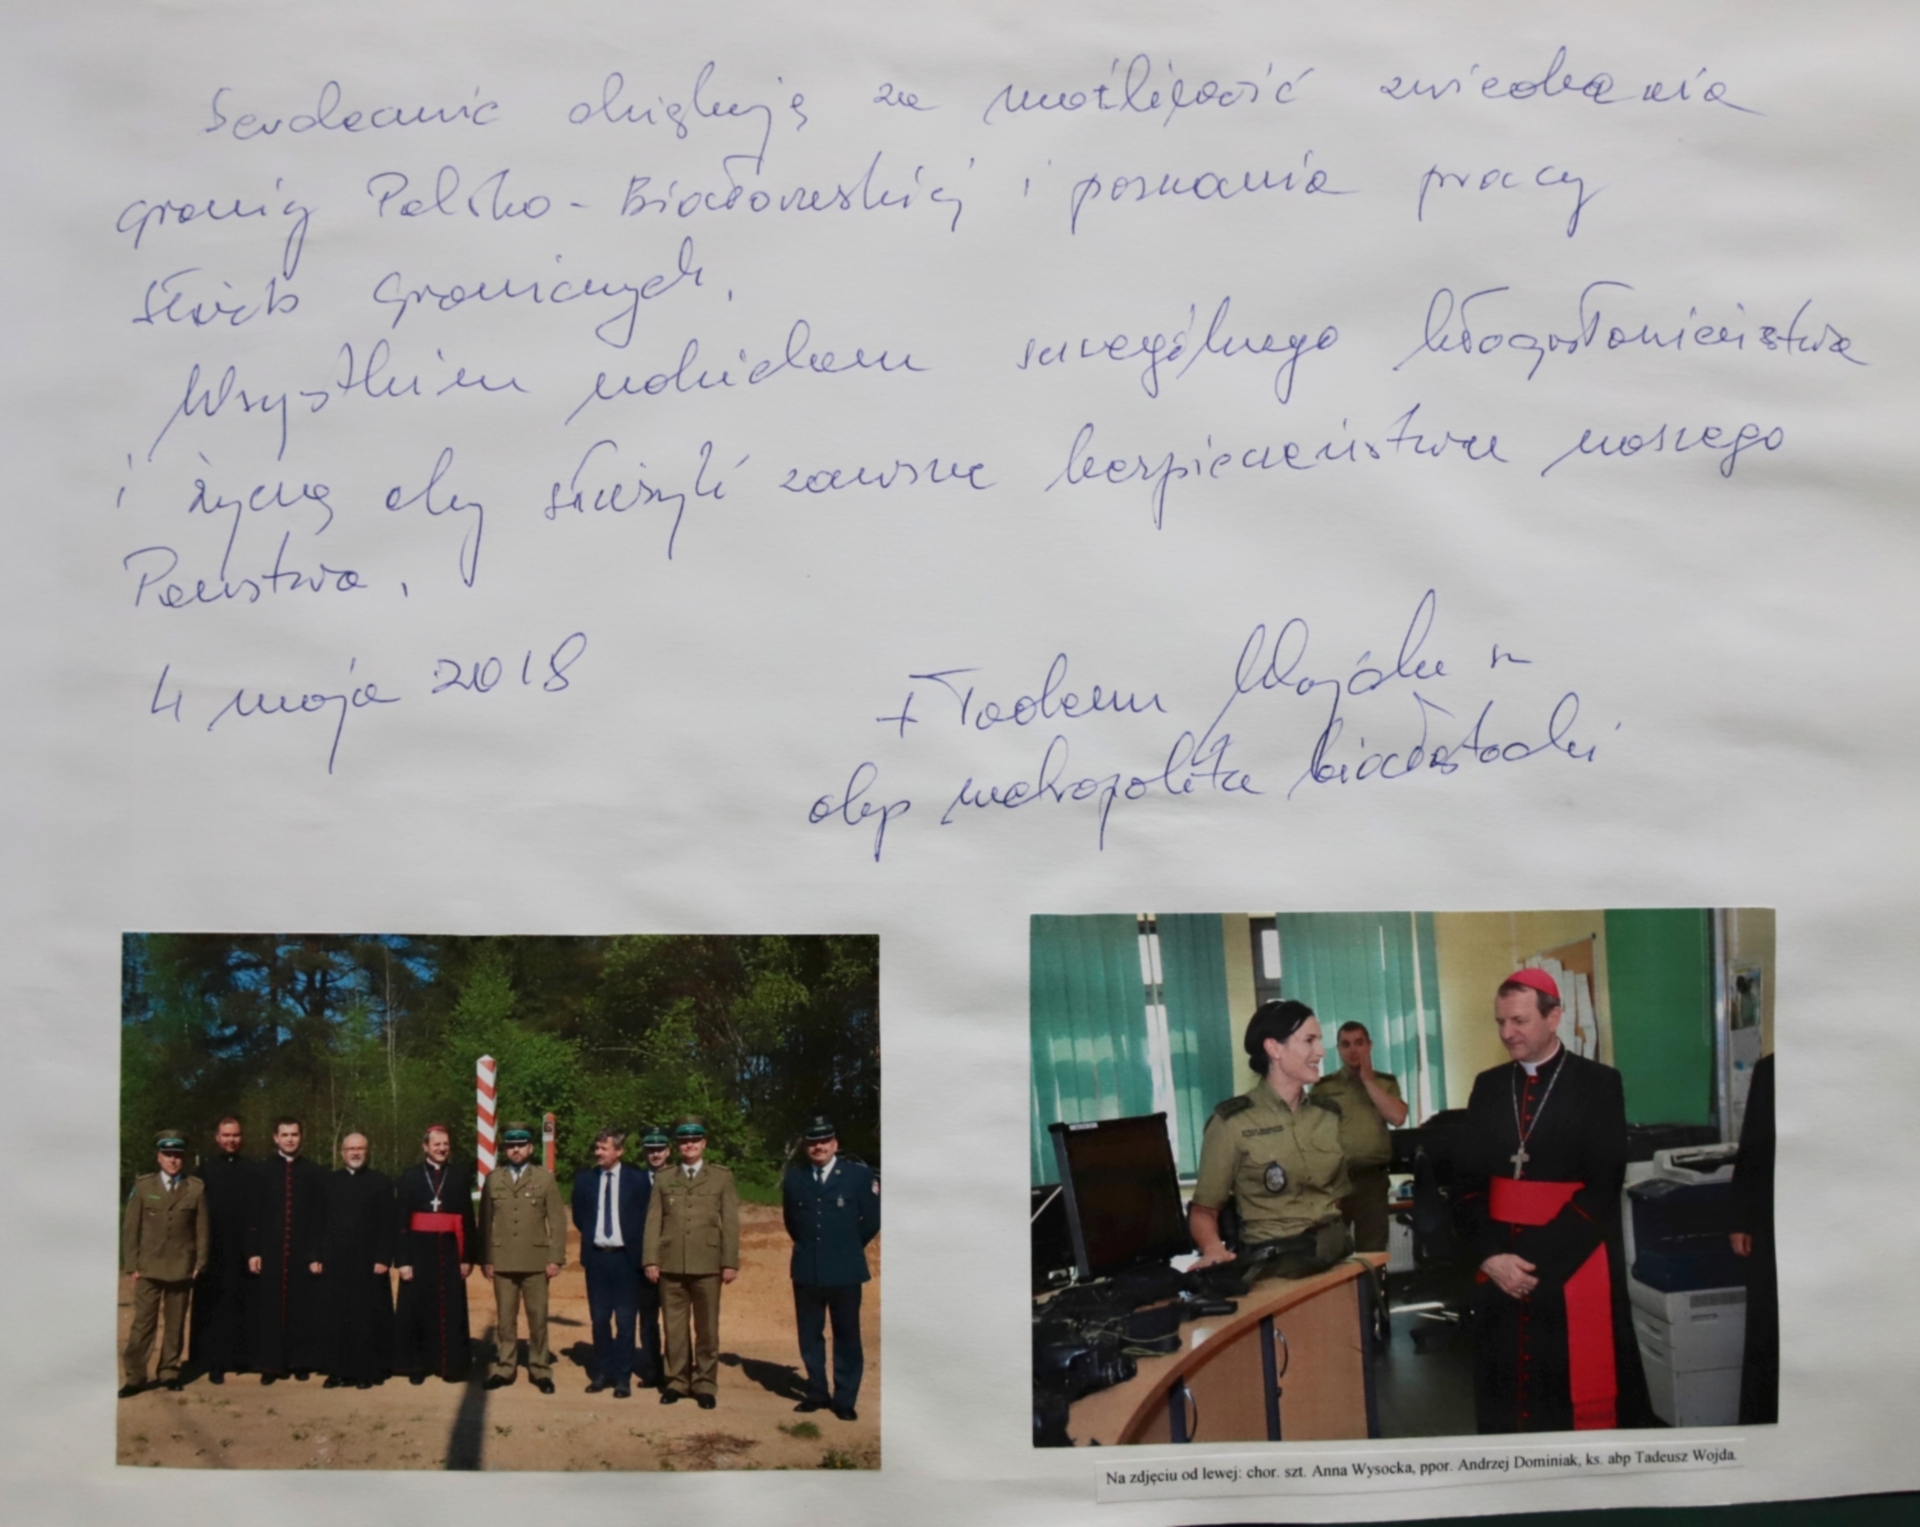 Serdecznie dziękuję za możliwość zwiedzania
granicy Polsko-Białoruskiej i poznania pracy
służb granicznych.
Wszystkim udzielam szczególnego błogosławieństwa
i życzę aby służyli zawsze bezpieczeństwu naszego
Państwa.
4 maja 2018
+ Tadeusz Wojda
abp metropolita białostocki
Na zdjęciu od lewej: chor. szt. Anna Wysocka, ppor. Andrzej Dominiak, ks. abp Tadeusz Wojda.